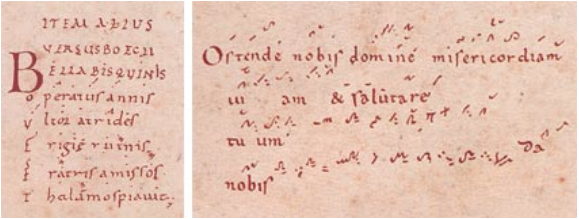 ITEM ALIUS
VERSUS BOECII
BELLA BIS QUINIS
operatus annis
Vltor atrides
Frigie ruinis
Fratris amissos
Thalamos piavit
Ostende nobis domine misericordiam
tu am & salutare
tu um
Da
nobis